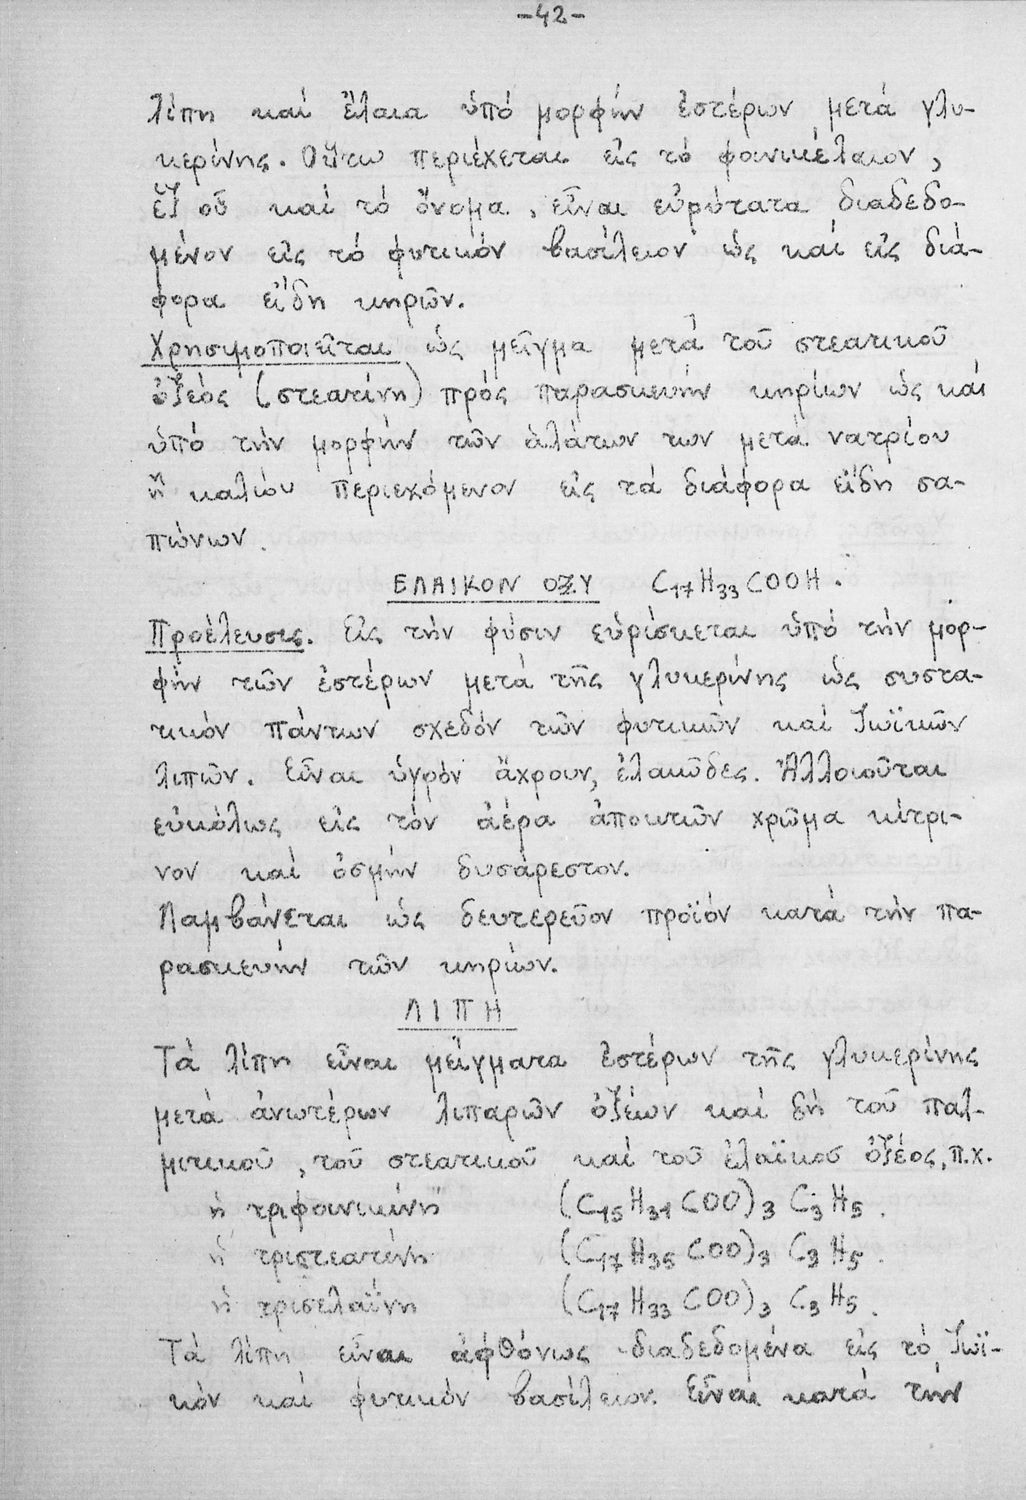 -42-
λίπη καί ἔλαια ὑπό μορφήν ἐστέρων μετά γλυ-
κερίνης. Οὕτω περιέχεται εἰς τό φοινικέλαιον,
ἐξ οὗ καί τό ὄνομα, εἶναι εὐρύτατα διαδεδο-
μένον εἰς τό φυτικόν βασίλειον ὡς καί εἰς διά-
φορα εἴδη κηρῶν.
Χρησιμοποιεῖται ὡς μεῖγμα μετά τοῦ στεατικοῦ
ὀξέος (στεατίνη) πρός παρασκευήν κηρίων ὡς καί
ὑπό τήν μορφήν τῶν ἁλάτων των μετά νατρίου
ἤ καλίου περιεχόμενον εἰς τά διάφορα εἴδη σα-
πώνων.
ΕΛΑΙΚΟΝ ΟΞΥ C₁₇H₃₃COOH.
Προέλευσις. Εἰς τήν φύσιν εὑρίσκεται ὑπό τήν μορ-
φήν τῶν ἐστέρων μετά τῆς γλυκερίνης ὡς συστα-
τικόν πάντων σχεδόν τῶν φυτικῶν καί ζωϊκῶν
λιπῶν. Εἶναι ὑγρόν ἄχρουν, ἐλαιῶδες. Ἀλλοιοῦται
εὐκόλως εἰς τόν ἀέρα ἀποκτῶν χρῶμα κίτρι-
νον καί ὀσμήν δυσάρεστον.
Λαμβάνεται ὡς δευτερεῦον προϊόν κατά τήν πα-
ρασκευήν τῶν κηρίων.
ΛΙΠΗ
Τά λίπη εἶναι μείγματα ἐστέρων τῆς γλυκερίνης
μετά ἀνωτέρων λιπαρῶν ὀξέων καί δή τοῦ παλ-
μιτικοῦ, τοῦ στεατικοῦ καί τοῦ ἐλαϊκοῦ ὀξέος, π.χ.
ἡ τριφοινικίνη (C₁₅H₃₁COO)₃C₃H₅.
ἡ τριστεατίνη (C₁₇H₃₅COO)₃C₃H₅.
ἡ τρισελαΐνη (C₁₇H₃₃COO)₃C₃H₅.
Τά λίπη εἶναι ἀφθόνως διαδεδομένα εἰς τό ζωϊ-
κόν καί φυτικόν βασίλειον. Εἶναι κατά τήν